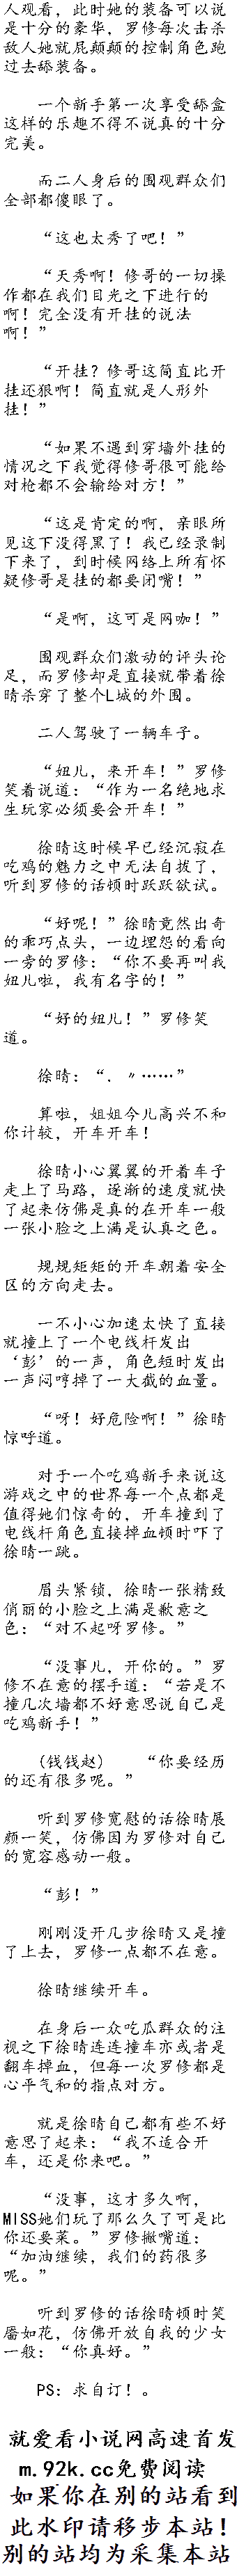 人观看，此时她的装备可以说
是十分的豪华，罗修每次击杀
敌人她就屁颠颠的控制角色跑
过去舔装备。
一个新手第一次享受舔盒
这样的乐趣不得不说真的十分
完美。
而二人身后的围观群众们
全部都傻眼了。
“这也太秀了吧！”
“天秀啊！修哥的一切操
作都在我们目光之下进行的
啊！完全没有开挂的说法
啊！”
“开挂？修哥这简直比开
挂还狠啊！简直就是人形外
挂！”
“如果不遇到穿墙外挂的
情况之下我觉得修哥很可能给
对枪都不会输给对方！”
“这是肯定的啊，亲眼所
见这下没得黑了！我已经录制
下来了，到时候网络上所有怀
疑修哥是挂的都要闭嘴！”
“是啊，这可是网咖！”
围观群众们激动的评头论
足，而罗修却是直接就带着徐
晴杀穿了整个L城的外围。
二人驾驶了一辆车子。
“妞儿，来开车！”罗修
笑着说道：“作为一名绝地求
生玩家必须要会开车！”
徐晴这时候早已经沉寂在
吃鸡的魅力之中无法自拔了，
听到罗修的话顿时跃跃欲试。
“好呢！”徐晴竟然出奇
的乖巧点头，一边埋怨的看向
一旁的罗修：“你不要再叫我
妞儿啦，我有名字的！”
“好的妞儿！”罗修笑
道。
徐晴：“．〃……”
算啦，姐姐今儿高兴不和
你计较，开车开车！
徐晴小心翼翼的开着车子
走上了马路，逐渐的速度就快
了起来仿佛是真的在开车一般
一张小脸之上满是认真之色。
规规矩矩的开车朝着安全
区的方向走去。
一不小心加速太快了直接
就撞上了一个电线杆发出
‘彭’的一声，角色短时发出
一声闷哼掉了一大截的血量。
“呀！好危险啊！”徐晴
惊呼道。
对于一个吃鸡新手来说这
游戏之中的世界每一个点都是
值得她们惊奇的，开车撞到了
电线杆角色直接掉血顿时吓了
徐晴一跳。
眉头紧锁，徐晴一张精致
俏丽的小脸之上满是歉意之
色：“对不起呀罗修。”
“没事儿，开你的。”罗
修不在意的摆手道：“若是不
撞几次墙都不好意思说自己是
吃鸡新手！”
(钱钱赵)　“你要经历
的还有很多呢。”
听到罗修宽慰的话徐晴展
颜一笑，仿佛因为罗修对自己
的宽容感动一般。
“彭！”
刚刚没开几步徐晴又是撞
了上去，罗修一点都不在意。
徐晴继续开车。
在身后一众吃瓜群众的注
视之下徐晴连连撞车亦或者是
翻车掉血，但每一次罗修都是
心平气和的指点对方。
就是徐晴自己都有些不好
意思了起来：“我不适合开
车，还是你来吧。”
“没事，这才多久啊，
MISS她们玩了那么久了可是比
你还要菜。”罗修撇嘴道：
“加油继续，我们的药很多
呢。”
听到罗修的话徐晴顿时笑
靥如花，仿佛开放自我的少女
一般：“你真好。”
PS：求自订！。
就爱看小说网高速首发
m.92k.cc免费阅读
如果你在别的站看到
此水印请移步本站！
别的站均为采集本站